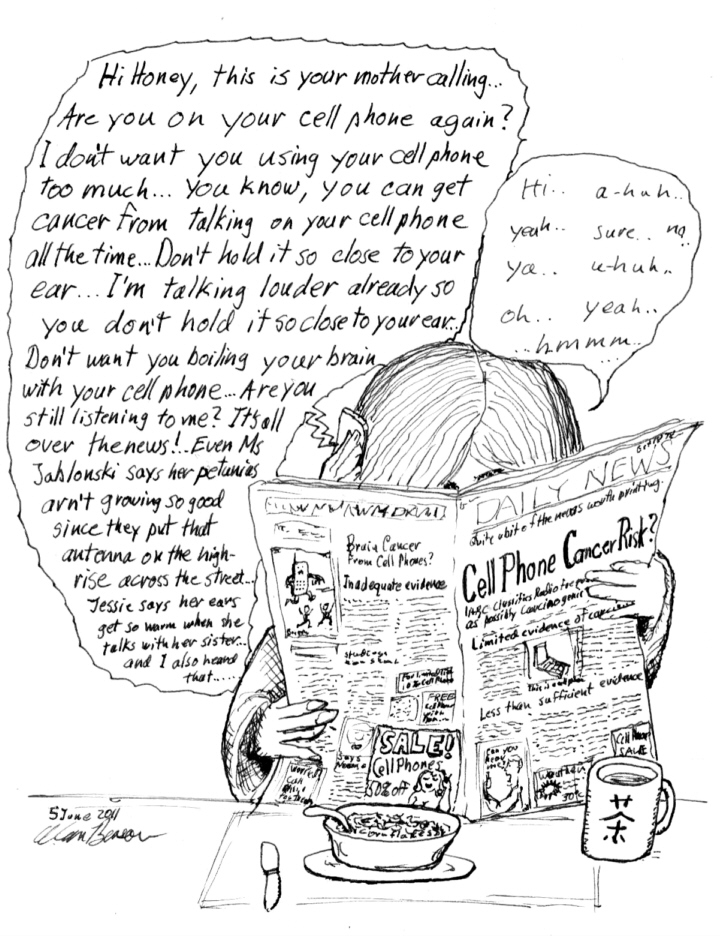 Hi Honey, this is your mother calling...
Are you on your cell phone again?
I don't want you using your cell phone
too much... You know, you can get
cancer from talking on your cell phone
all the time... Don't hold it so close to your
ear... I'm talking louder already so
you don't hold it so close to your ear...
Don't want you boiling your brain
with your cell phone... Are you
still listening to me? It's all
over the news!.. Even Ms
Jablonski says her petunias
arn't growing so good
since they put that
antenna on the high-
rise across the street...
Jessie says her ears
get so warm when she
talks with her sister...
and I also heard
that.....
Hi.. a-huh..
yeah.. sure.. no..
ya.. u-huh..
oh.. yeah..
...hmmm...
DAILY NEWS
Quite a bit of the news worth printing.
Cell Phone Cancer Risk?
IARC Classifies Radio
as possibly carcinogenic
Limited evidence of
This is a cell phone
Less than sufficient evidence
Cell Phone
SALE
Brain Cancer
From Cell Phones?
Inadequate evidence
FREE
SALE!
Cell Phones
50% off
corn flakes
茶
5 June 2011